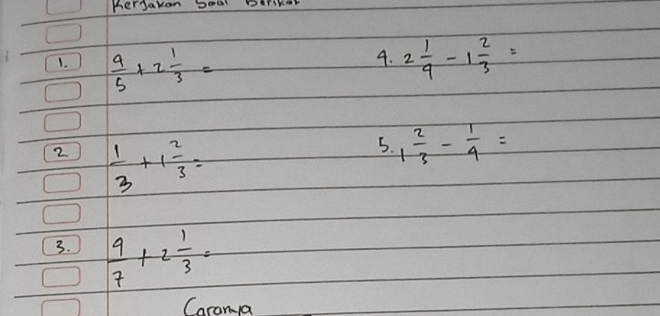 Kerjakan Soal Berikut
1. 4/5 + 2 1/3 =
4. 2 1/4 - 1 2/3 =
2 1/3 + 1 2/3 =
5. 1 2/3 - 1/4 =
3. 4/7 + 2 1/3 =
Caranya